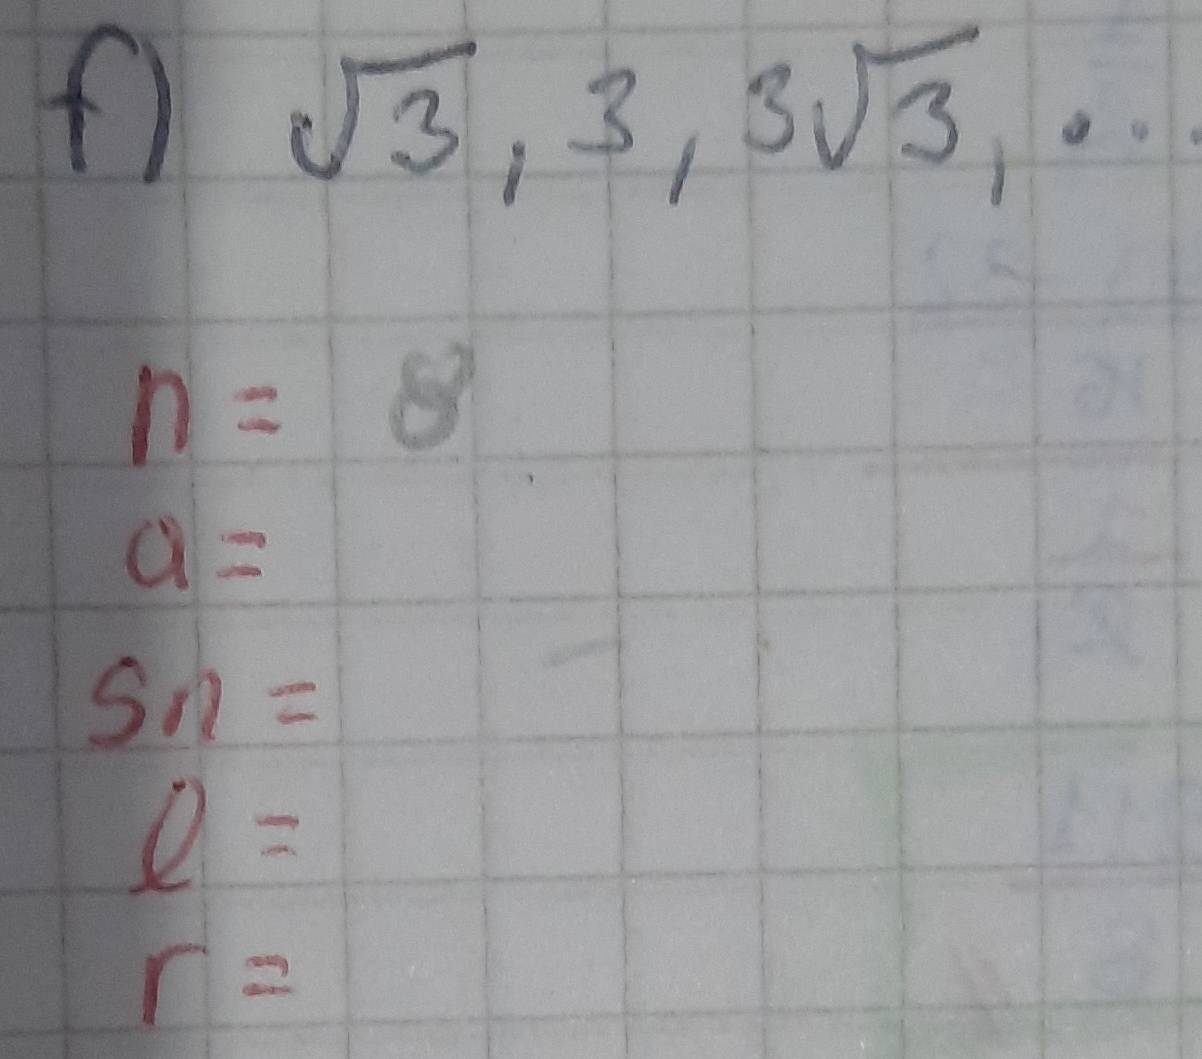 f) √3, 3, 3√3, ...
n = 8
a =
Sn =
l =
r =